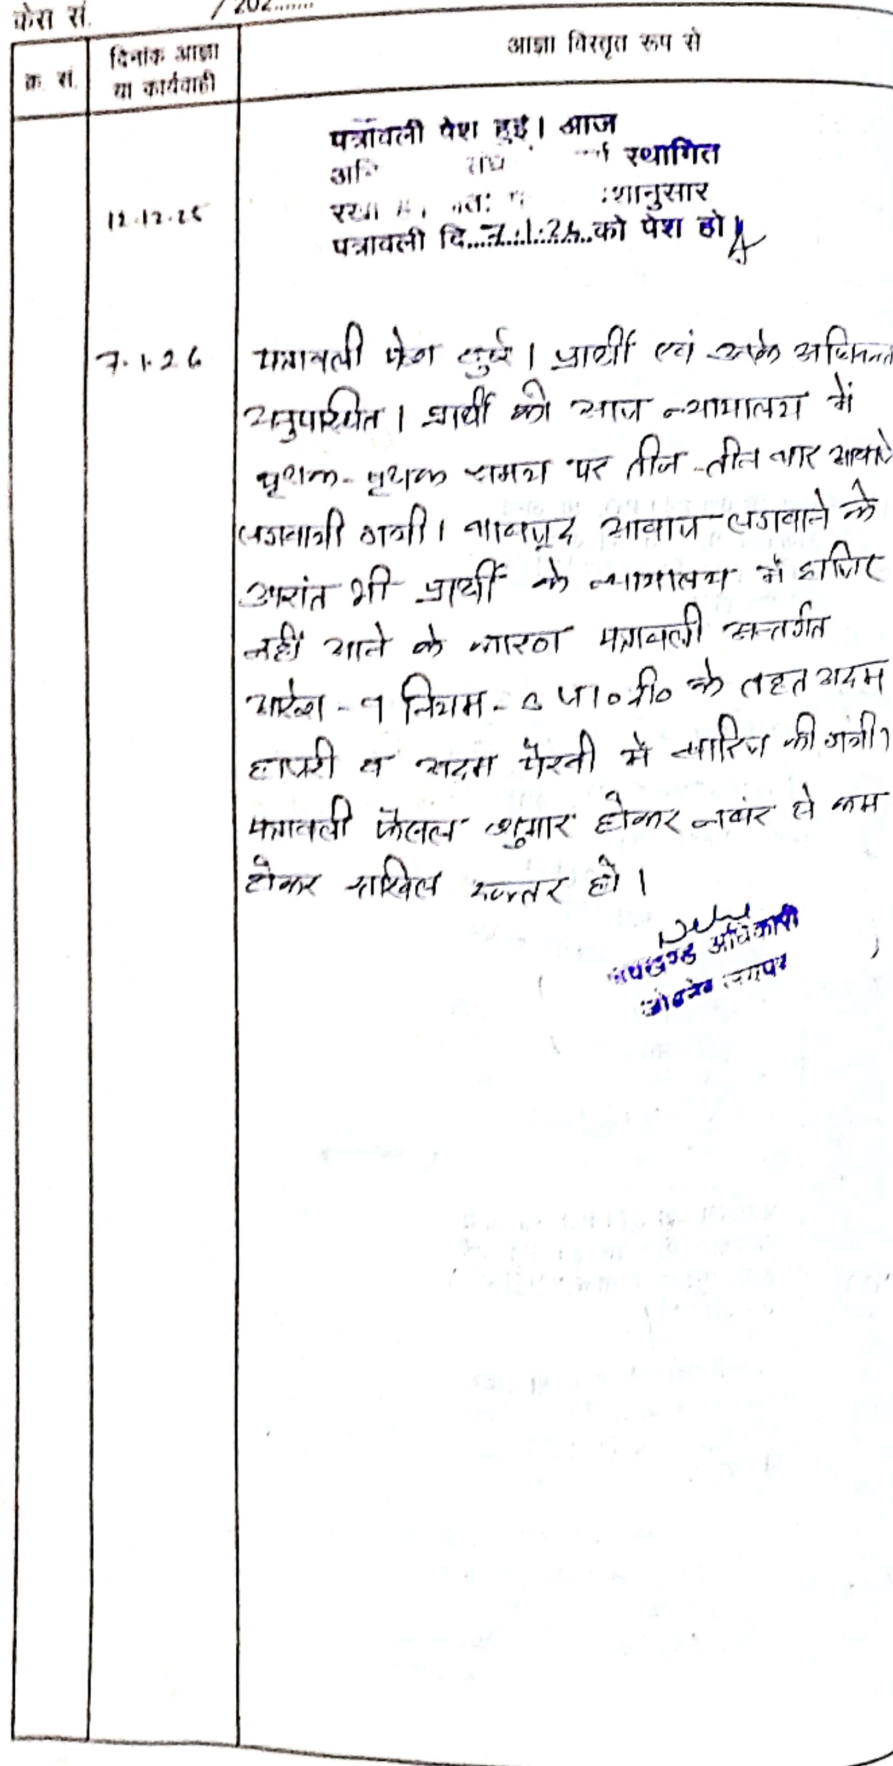 केस सं. /202.......
क्र. सं. दिनांक आज्ञा या कार्यवाही आज्ञा विस्तृत रूप से
पत्रावली पेश हुई। आज
स्थागित
12.12.25
पत्रावली दि...7.1.26...को पेश हो
7.1.26 पत्रावली पेश हुई। प्रार्थी एवं उसके अभिभाषक
अनुपस्थित। प्रार्थी को आज न्यायालय में
पृथक-पृथक समय पर तीन-तीन बार आवाजे
लगवायी गयी। बावजूद आवाज लगवाने के
उपरांत भी प्रार्थी के न्यायालय में हाजिर
नहीं आने के कारण पत्रावली अन्तर्गत
आदेश-9 नियम-8 जा०दी० के तहत अदम
हाजरी व अदम पैरवी में खारिज की गयी।
पत्रावली फैसल शुमार होकर नंबर से कम
होकर दाखिल दफ्तर हो।
उपखण्ड अधिकारी